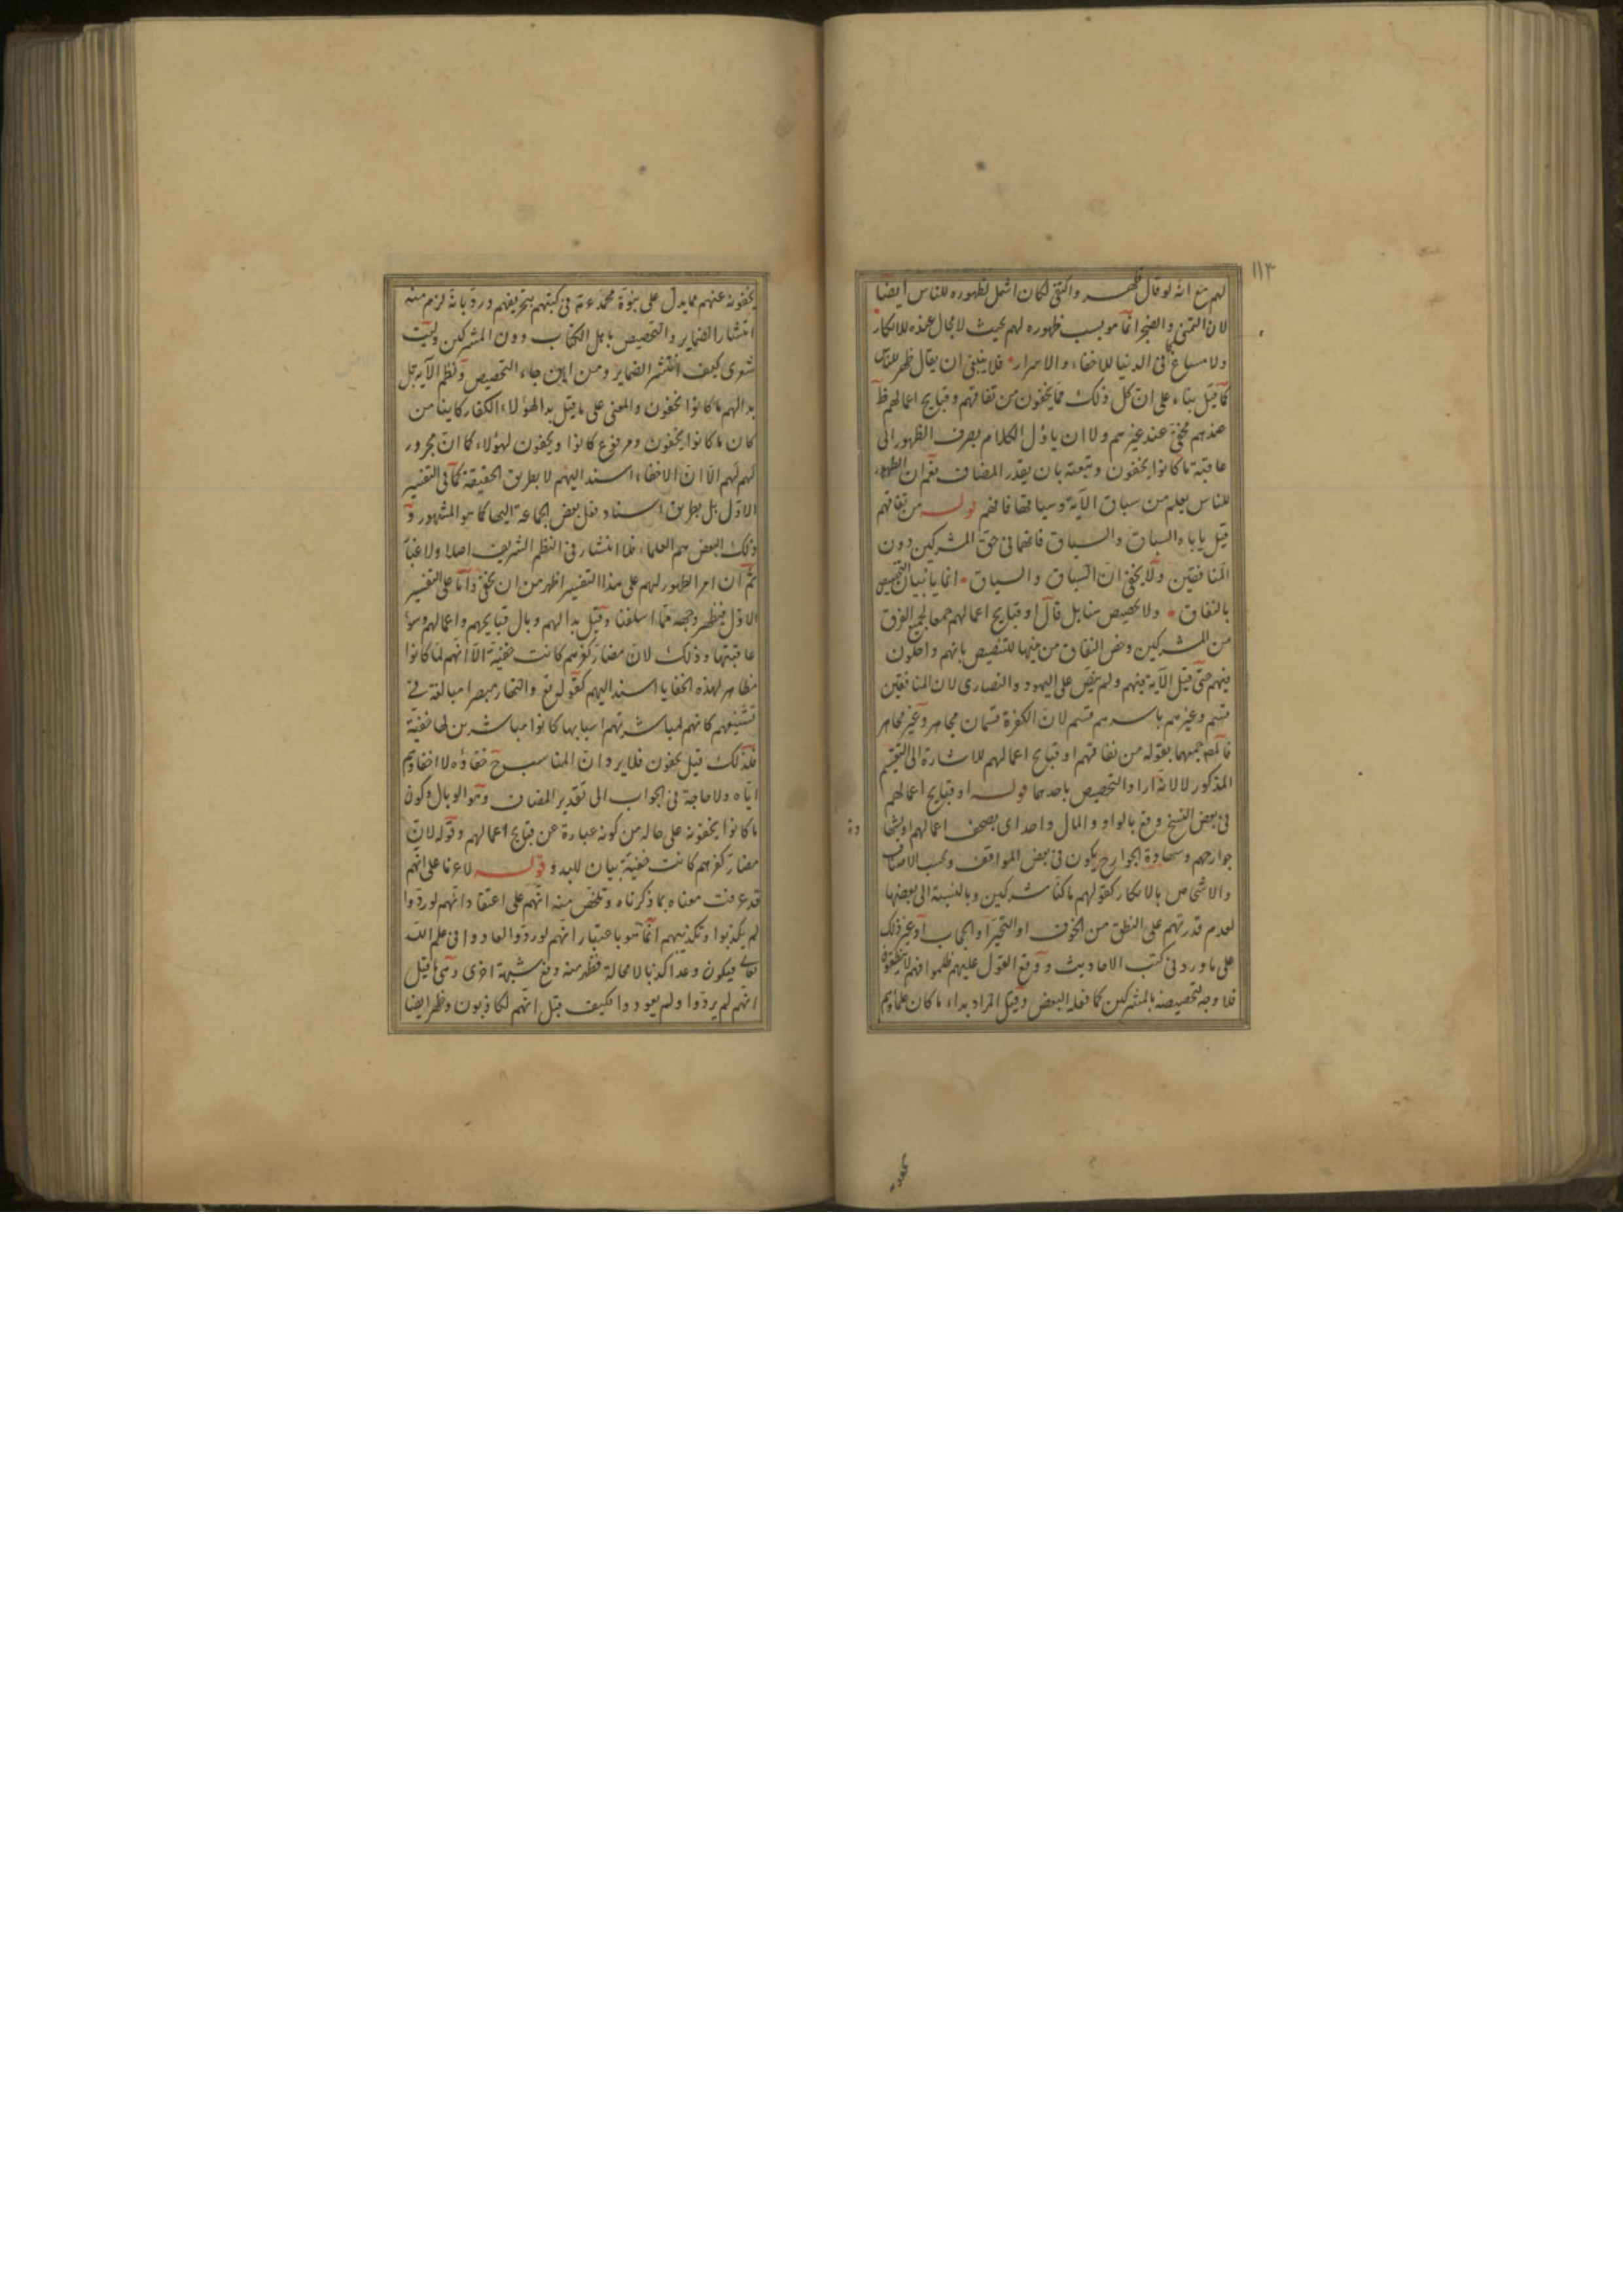 ١١٣
لهم مع انه لو قال ظهر واكتفى لكان اشمل لظهوره للناس ايضا
لان التمنى والضجر انما هو بسبب ظهوره لهم بحيث لا مجال عنده للانكار
ولا مساغ فى الدنيا للاخفاء والاسرار فلا ينبغى ان يقال ظهر للناس
كما قيل بناء على ان كل ذلك مما يخفون من نفاقهم وقبايح اعمالهم
عندهم مخفى عند غيرهم ولا ان ياؤل الكلام بصرف الظهور الى
عاقبة ما كانوا يخفون وتبعته بان يقدر المضاف نعم ان الظهور
للناس يعلم من سباق الآية وسياقها فافهم قوله من نفاقهم
قيل ياباه السباق والسياق فانهما فى حق المشركين دون
المنافقين ولا يخفى ان السباق والسياق انما يابيان التخصيص
بالنفاق ولا تخصيص هنا بل قال او قبايح اعمالهم جمعا لجميع الفرق
من المشركين وخص النفاق من بينها للتنصيص بانهم داخلون
فيهم حتى قيل الآية فيهم ولم ينص على اليهود والنصارى لان المنافقين
قسم وغيرهم باسرهم قسم لان الكفرة قسمان مجاهر وغير مجاهر
فالمص جمعهما بقوله من نفاقهم او قبايح اعمالهم للاشارة الى التقسيم
المذكور لا لانه اراد التخصيص باحدهما قوله او قبايح اعمالهم
فى بعض النسخ وقع بالواو والمال واحد اى بصحف اعمالهم او بشهادة
جوارحهم وشهادة الجوارح يكون فى بعض المواقف وبحسب الاصناف
والاشخاص بالانكار كقولهم ما كنا مشركين وبالنسبة الى بعضها
لعدم قدرتهم على النطق من الخوف او التحير او الحجاب او غير ذلك
على ما ورد فى كتب الاحاديث ووقع القول عليهم بما ظلموا فهم لا ينطقون
فلا وجه لتخصيصه بالمشركين كما فعله البعض وقيل المراد بداء ما كان علماؤهم
يخفونه عنهم مما يدل على نبوة محمد عم فى كتبهم بتحريفهم ورد بانه لزم منه
انتشار الضماير والتخصيص باهل الكتاب دون المشركين وليت
شعرى كيف انتشر الضماير ومن اين جاء التخصيص ونظم الآية بل
بدا لهم ما كانوا يخفون والمعنى على ما قيل بدا لهؤلاء الكفار كاينا من
كان ما كانوا يخفون ومرفوع كانوا ويخفون لهؤلاء كما ان مجرور
لهم لهم الا ان الاخفاء اسند اليهم لا بطريق الحقيقة كما فى التفسير
الاول بل بطريق اسناد فعل بعض الجماعة اليها كما هو المشهور و
ذلك البعض هم العلماء فلا انتشار فى النظم الشريف اصلا ولا غبار
ثم ان امر الظهور لهم على هذا التفسير اظهر من ان يخفى واما على التفسير
الاول فيظهر وجهه مما اسلفنا وقيل بدا لهم وبال قبايحهم واعمالهم وسوء
عاقبتها وذلك لان مضار كفرهم كانت خفية الا انهم لما كانوا
مظاهر لهذه الخفايا اسند اليهم كقوله تع والنهار مبصرا مبالغة فى
تشنيعهم كانهم لمباشرتهم اسبابها كانوا مباشرين لها خفية
فلذلك قيل يخفون فلا يرد ان المناسب ح خفاؤه لا اخفاؤهم
اياه ولا حاجة فى الجواب الى تقدير المضاف وهو الوبال وكون
ما كانوا يخفونه على حاله من كونه عبارة عن قبايح اعمالهم وقوله لان
مضار كفرهم كانت خفية بيان للبدو قوله لا عزما على انهم
قد عرفت معناه بما ذكرناه وتلخص منه انهم على اعتقاد انهم لو ردوا
لم يكذبوا وتكذيبهم انما هو باعتبار انهم لو ردوا لعادوا فى علم الله
تعالى فيكون وعدا كذبا لا محالة فظهر منه دفع شبهة اخرى وهى ما قيل
انهم لم يردوا ولم يعودوا فكيف قيل انهم لكاذبون وظهر ايضا